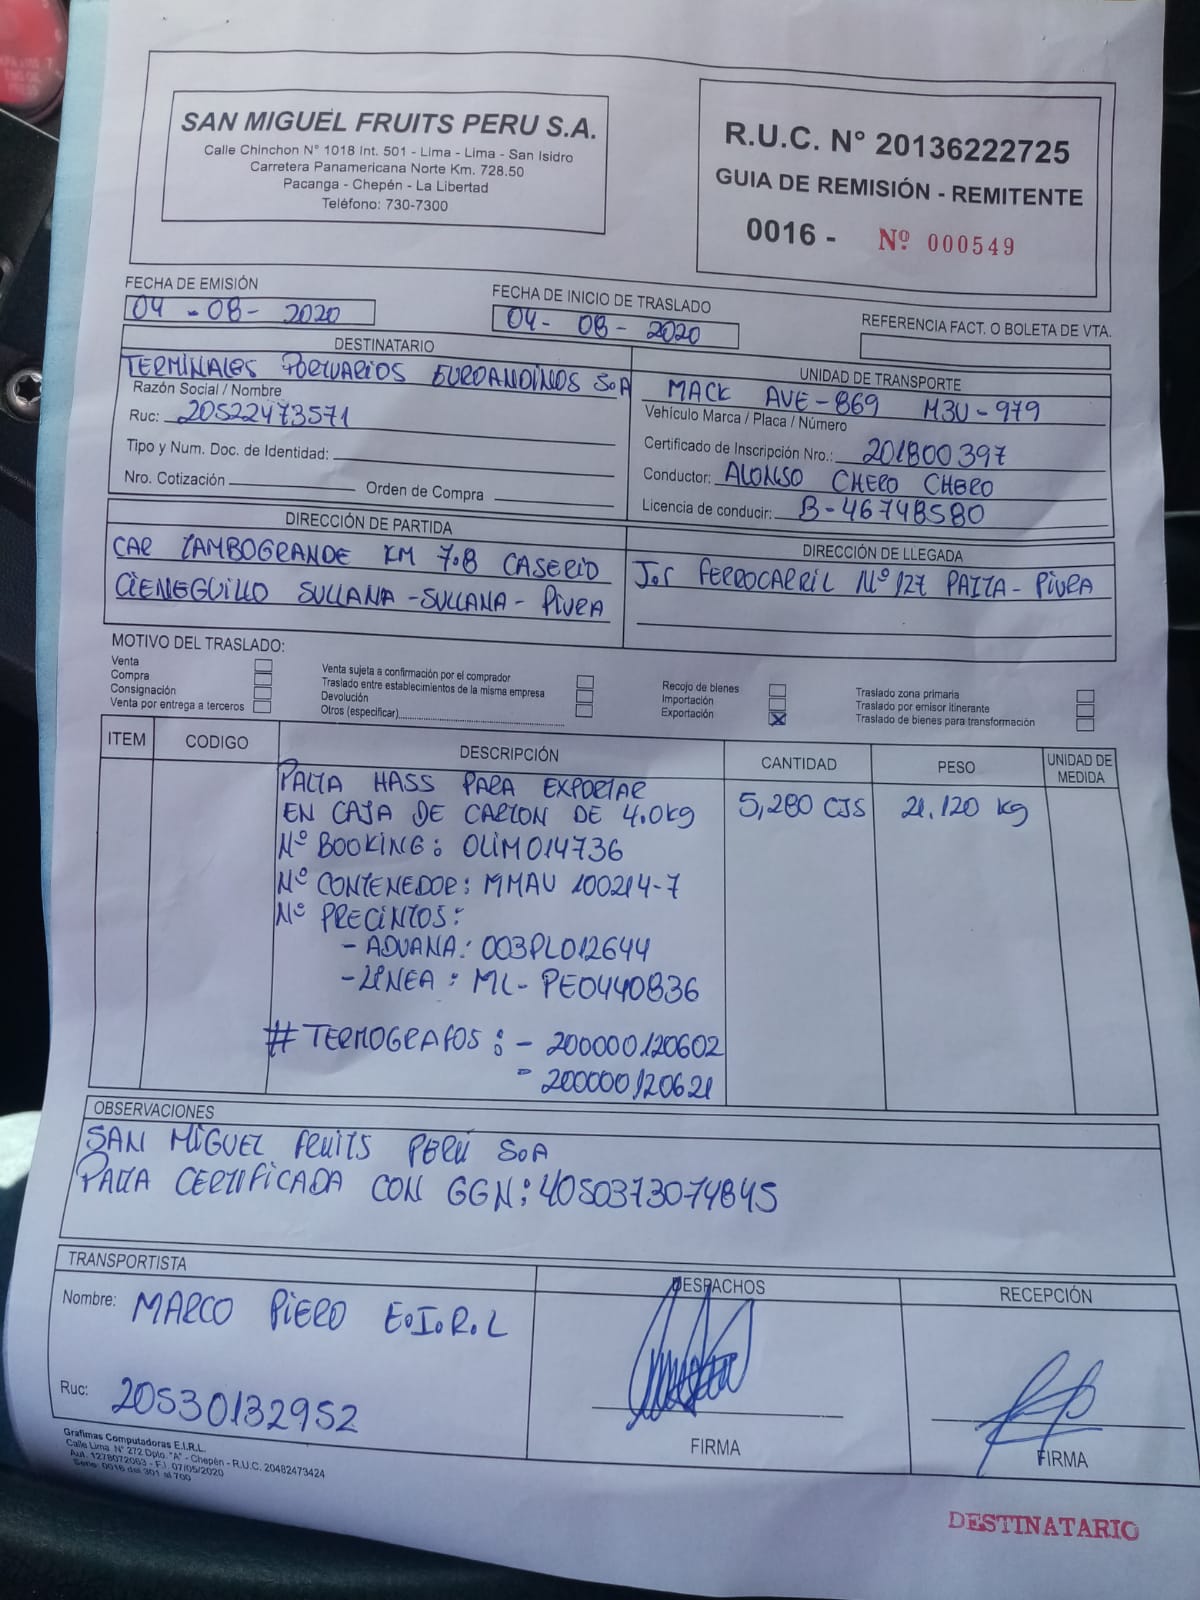 SAN MIGUEL FRUITS PERU S.A.
Calle Chinchon N° 1018 Int. 501 - Lima - Lima - San Isidro
Carretera Panamericana Norte Km. 728.50
Pacanga - Chepén - La Libertad
Teléfono: 730-7300
R.U.C. N° 20136222725
GUIA DE REMISIÓN - REMITENTE
0016 - Nº 000549
FECHA DE EMISIÓN
04 - 08 - 2020
FECHA DE INICIO DE TRASLADO
04 - 08 - 2020
REFERENCIA FACT. O BOLETA DE VTA.
DESTINATARIO
TERMINALES PORTUARIOS EUROANDINOS S.A
Razón Social / Nombre
Ruc: 20522473571
Tipo y Num. Doc. de Identidad:
Nro. Cotización
Orden de Compra
UNIDAD DE TRANSPORTE
MACK AVE-869 M3U-979
Vehículo Marca / Placa / Número
Certificado de Inscripción Nro.: 201800397
Conductor: ALONSO CHERO CHERO
Licencia de conducir: B-46748580
DIRECCIÓN DE PARTIDA
CAR TAMBOGRANDE KM 7.8 CASERIO
CIENEGUILLO SULLANA - SULLANA - PIURA
DIRECCIÓN DE LLEGADA
J.r FERROCARRIL Nº 127 PAITA - PIURA
MOTIVO DEL TRASLADO:
Venta
Compra
Consignación
Venta por entrega a terceros
Venta sujeta a confirmación por el comprador
Traslado entre establecimientos de la misma empresa
Devolución
Otros (especificar)
Recojo de bienes
Importación
Exportación X
Traslado zona primaria
Traslado por emisor itinerante
Traslado de bienes para transformación
ITEM CODIGO DESCRIPCIÓN CANTIDAD PESO UNIDAD DE MEDIDA
PALTA HASS PARA EXPORTAR
EN CAJA DE CARTON DE 4.0kg 5,280 CJS 21.120 kg
Nº BOOKING: OLIM014736
Nº CONTENEDOR: MMAU 100214-7
Nº PRECINTOS:
- ADUANA: 003PL012644
- LINEA: ML-PE0440836
# TERMOGRAFOS: - 200000120602
- 200000120621
OBSERVACIONES
SAN MIGUEL FRUITS PERÚ S.A
PALTA CERTIFICADA CON GGN: 4050373074845
TRANSPORTISTA
Nombre: MARCO PIERO E.I.R.L
Ruc: 20530132952
DESPACHOS
FIRMA
RECEPCIÓN
FIRMA
Grafimas Computadoras E.I.R.L.
Calle Lima N° 272 Dpto. "A" - Chepén - R.U.C. 20482473424
Aut. 1278072063 - F.I. 07/05/2020
Serie: 0016 del 301 al 700
DESTINATARIO